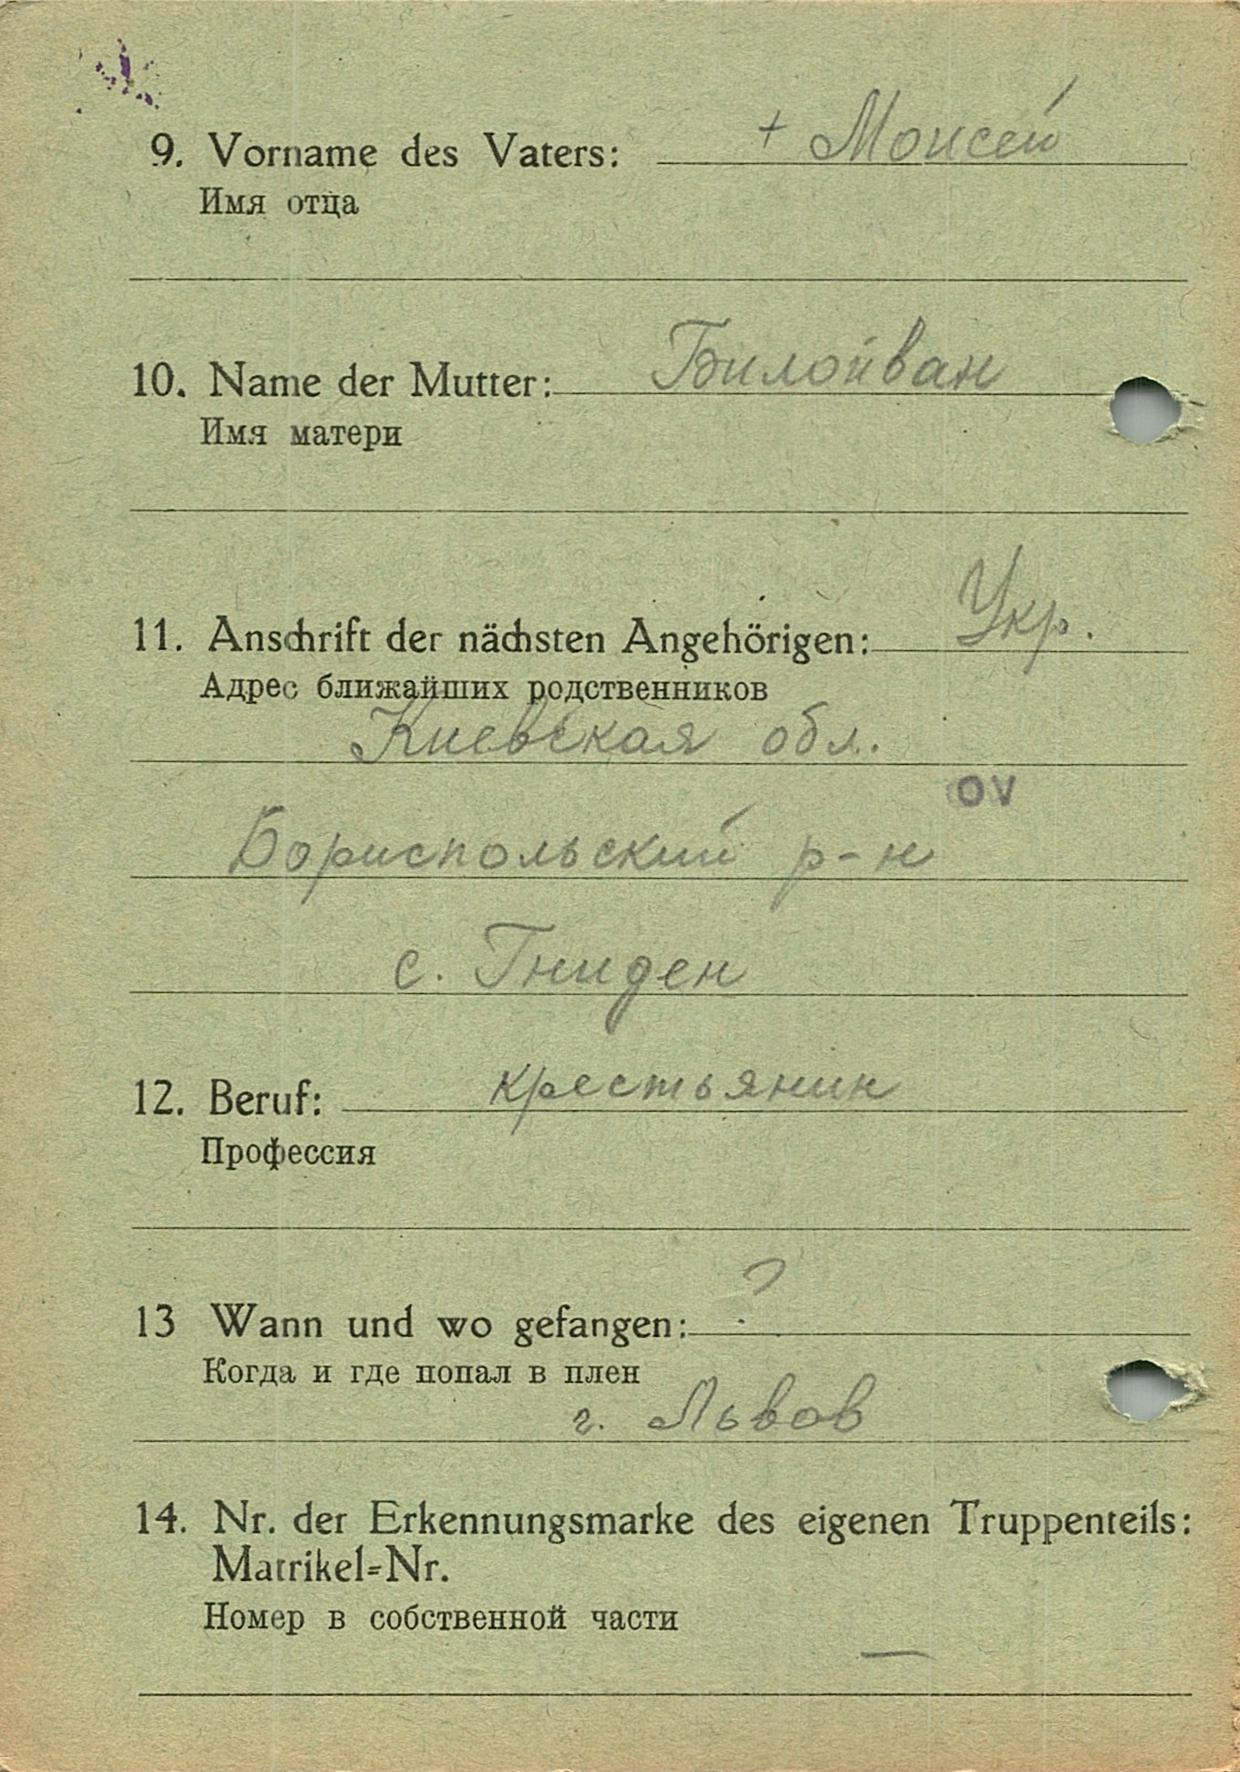 9. Vorname des Vaters: + Моисей
Имя отца
10. Name der Mutter: Билойван
Имя матери
11. Anschrift der nächsten Angehörigen: Укр.
Адрес ближайших родственников
Киевская обл.
OV
Бориспольский р-н
с. Гниден
12. Beruf: крестьянин
Профессия
13 Wann und wo gefangen: ?
Когда и где попал в плен
г. Львов
14. Nr. der Erkennungsmarke des eigenen Truppenteils:
Matrikel=Nr.
Номер в собственной части
—